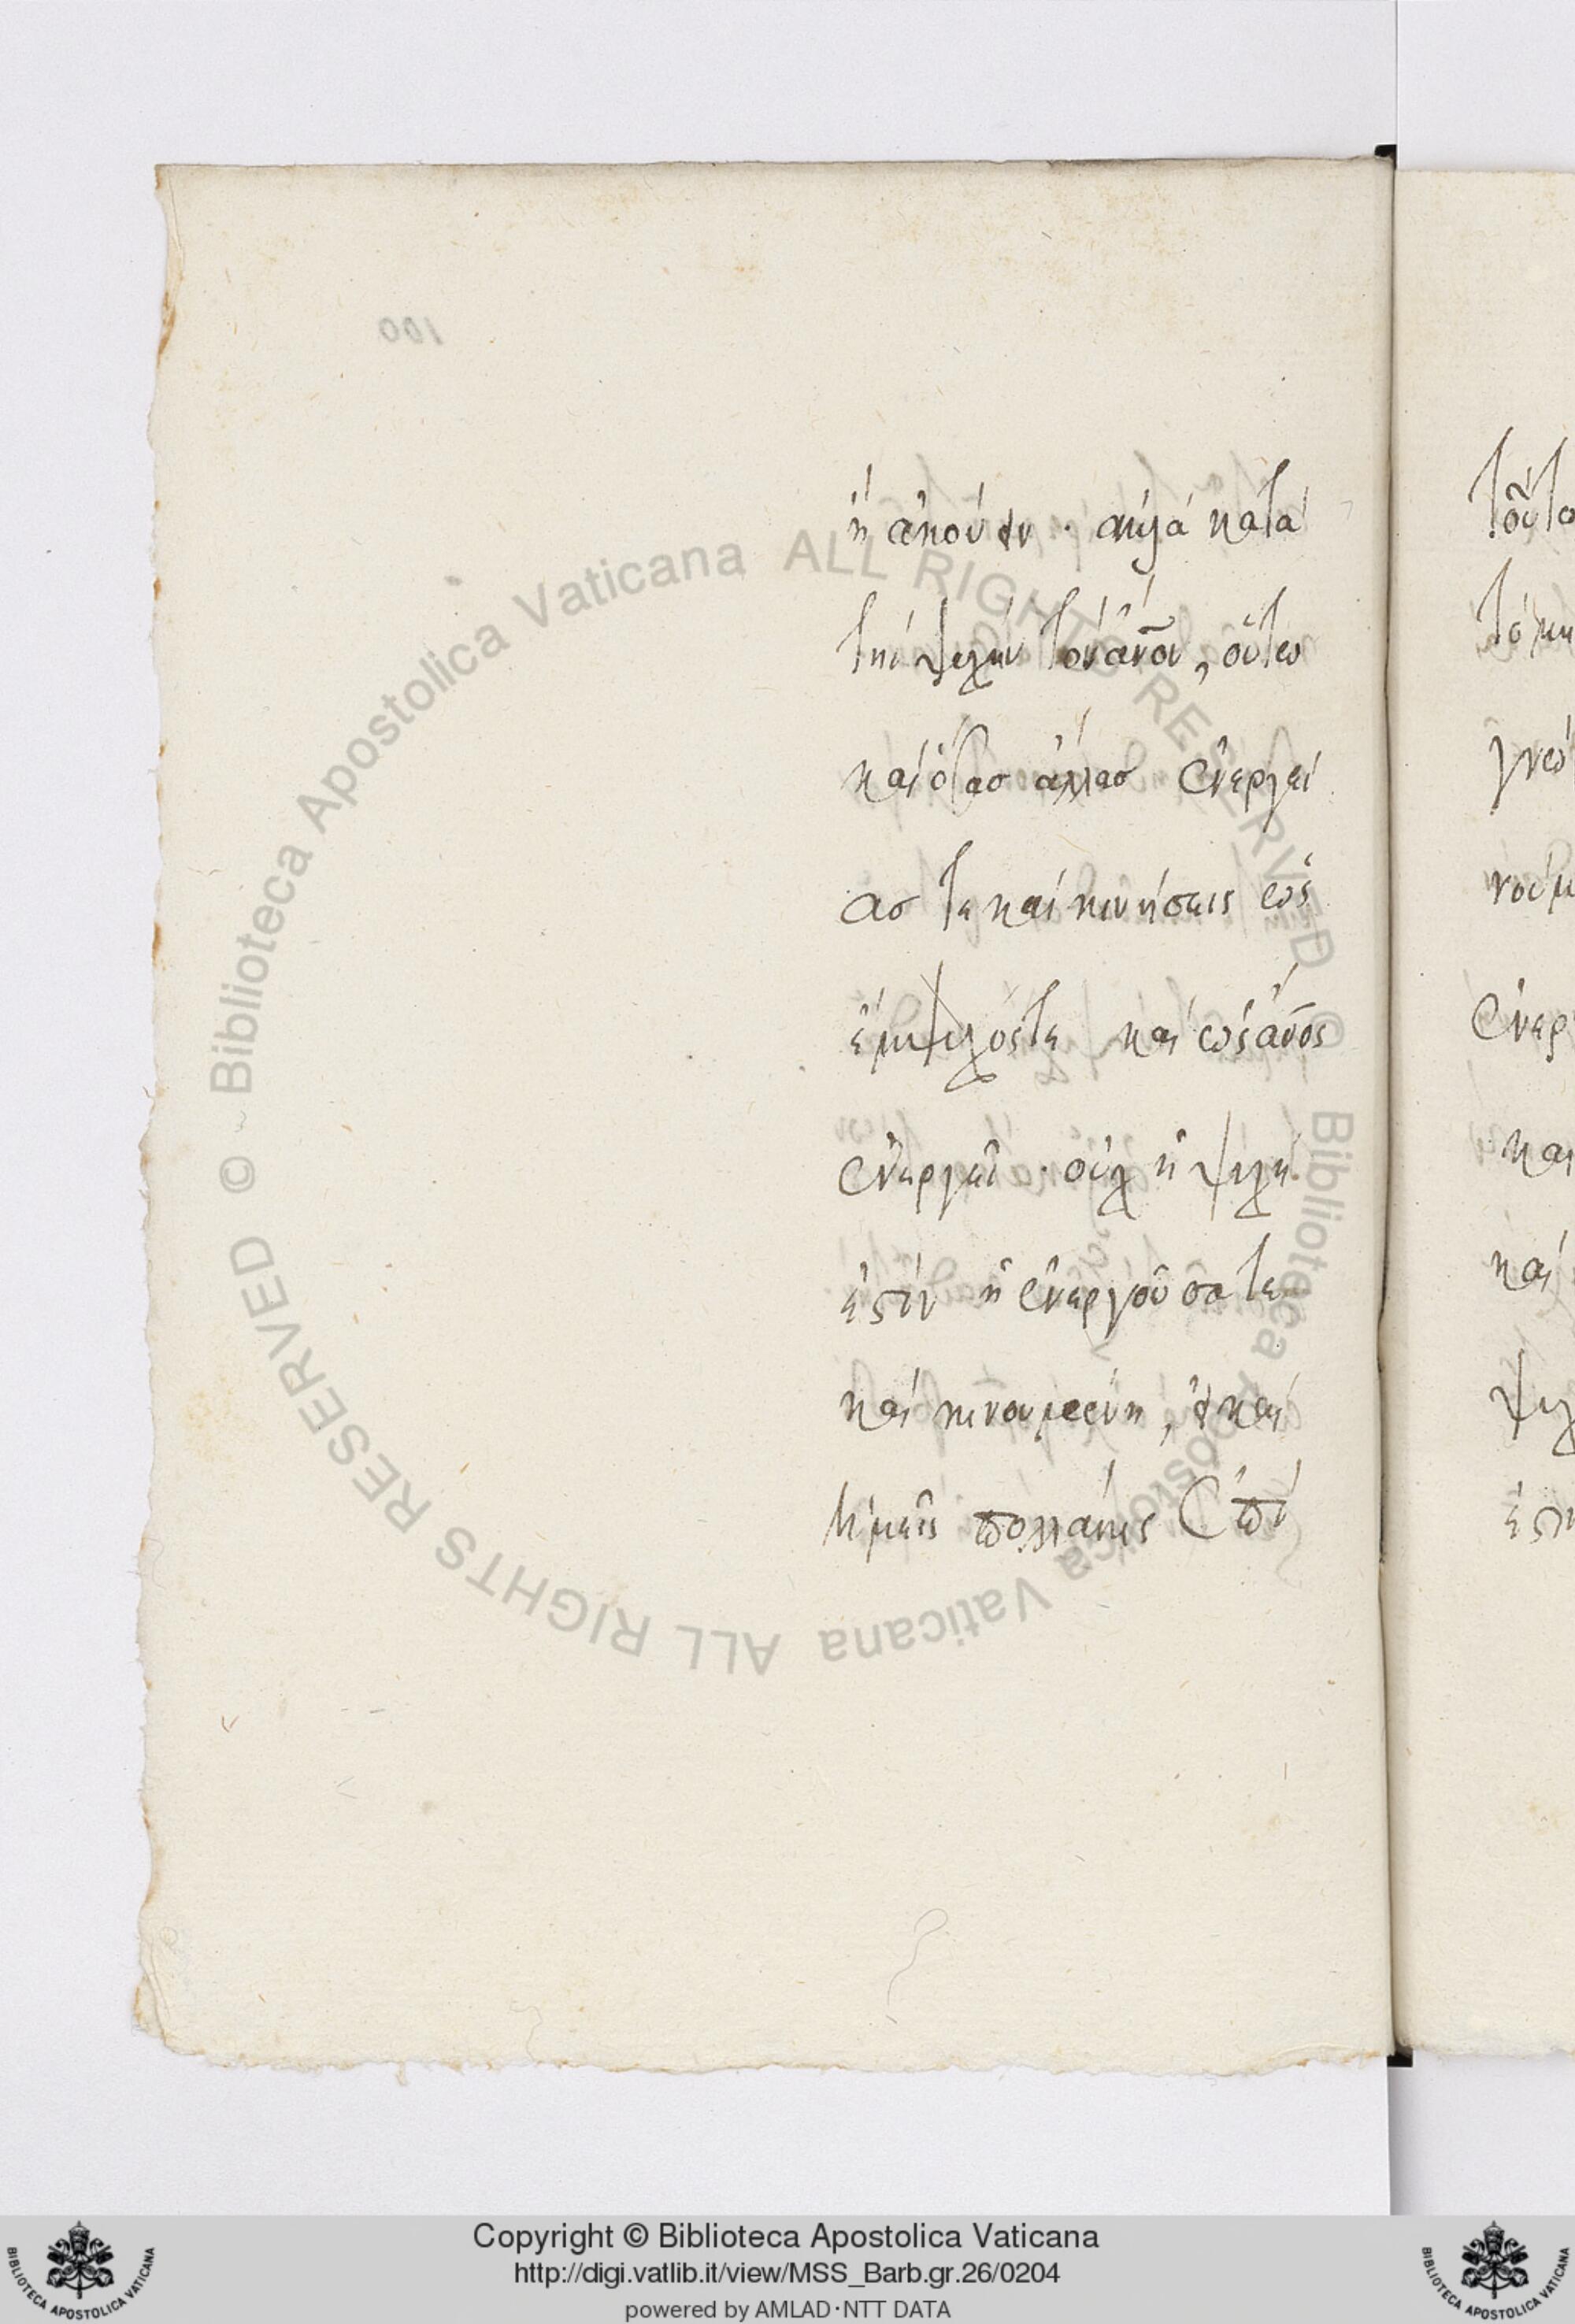 ἢ ἀκούειν · ἀλλὰ κατὰ
τὴν ψυχὴν τὸν ἄνον, οὕτω
καὶ ὅσας ἄλλας ἐνεργεί
ας τε καὶ κινήσεις ὡς
ἔμψυχός τε καὶ ὡς ἄνος
ἐνεργεῖ · οὐχ ἡ ψυχή
ἐστιν ἡ ἐνεργοῦσά τε
καὶ κινουμένη, εἰ καὶ
ἡμεῖς πολλάκις ἐπὶ
τοῦτο
γνω
νουμ
ἐνερ
και
καὶ
ψυχ
100
© Biblioteca Apostolica Vaticana ALL RIGHTS RESERVED
© Biblioteca Apostolica Vaticana ALL RIGHTS RESERVED
Copyright © Biblioteca Apostolica Vaticana
http://digi.vatlib.it/view/MSS_Barb.gr.26/0204
powered by AMLAD·NTT DATA
BIBLIOTECA APOSTOLICA VATICANA
BIBLIOTECA APOSTOLICA VATICANA